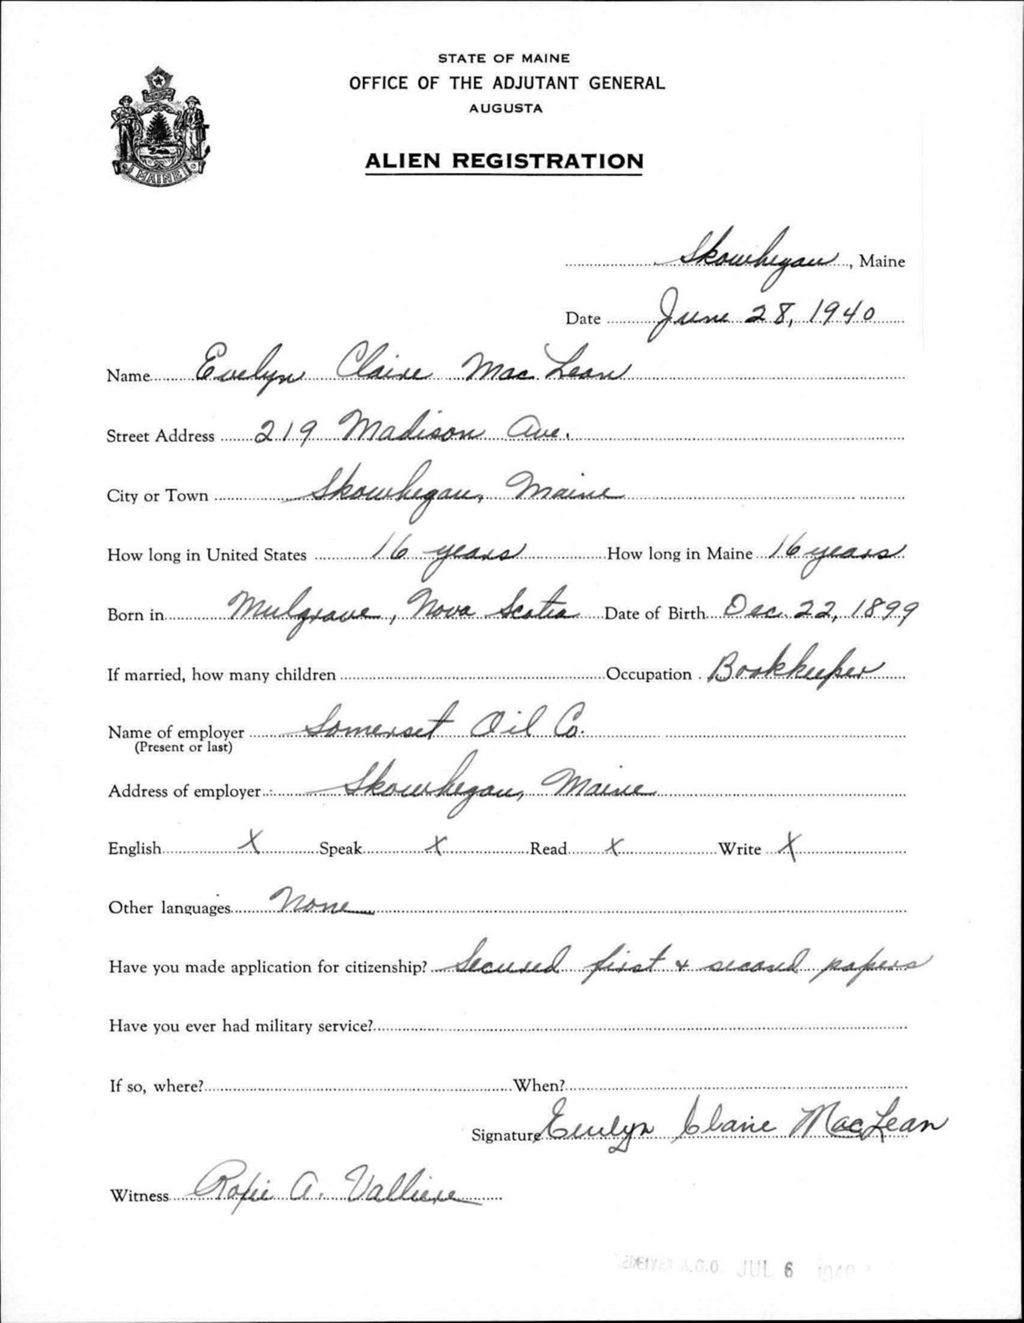 STATE OF MAINE
OFFICE OF THE ADJUTANT GENERAL
AUGUSTA
ALIEN REGISTRATION
MAINE
Skowhegan, Maine
Date June 28, 1940
Name Evelyn Claire MacLean
Street Address 219 Madison Ave.
City or Town Skowhegan, Maine
How long in United States 16 years How long in Maine 16 years
Born in Mulgrave, Nova Scotia Date of Birth Dec. 22, 1899
If married, how many children Occupation Bookkeeper
Name of employer Somerset Oil Co.
(Present or last)
Address of employer Skowhegan, Maine
English X Speak X Read X Write X
Other languages None
Have you made application for citizenship? Secured first + second papers
Have you ever had military service?
If so, where? When?
Signature Evelyn Claire MacLean
Witness A. Valliere
A.G.O. JUL 6 1940